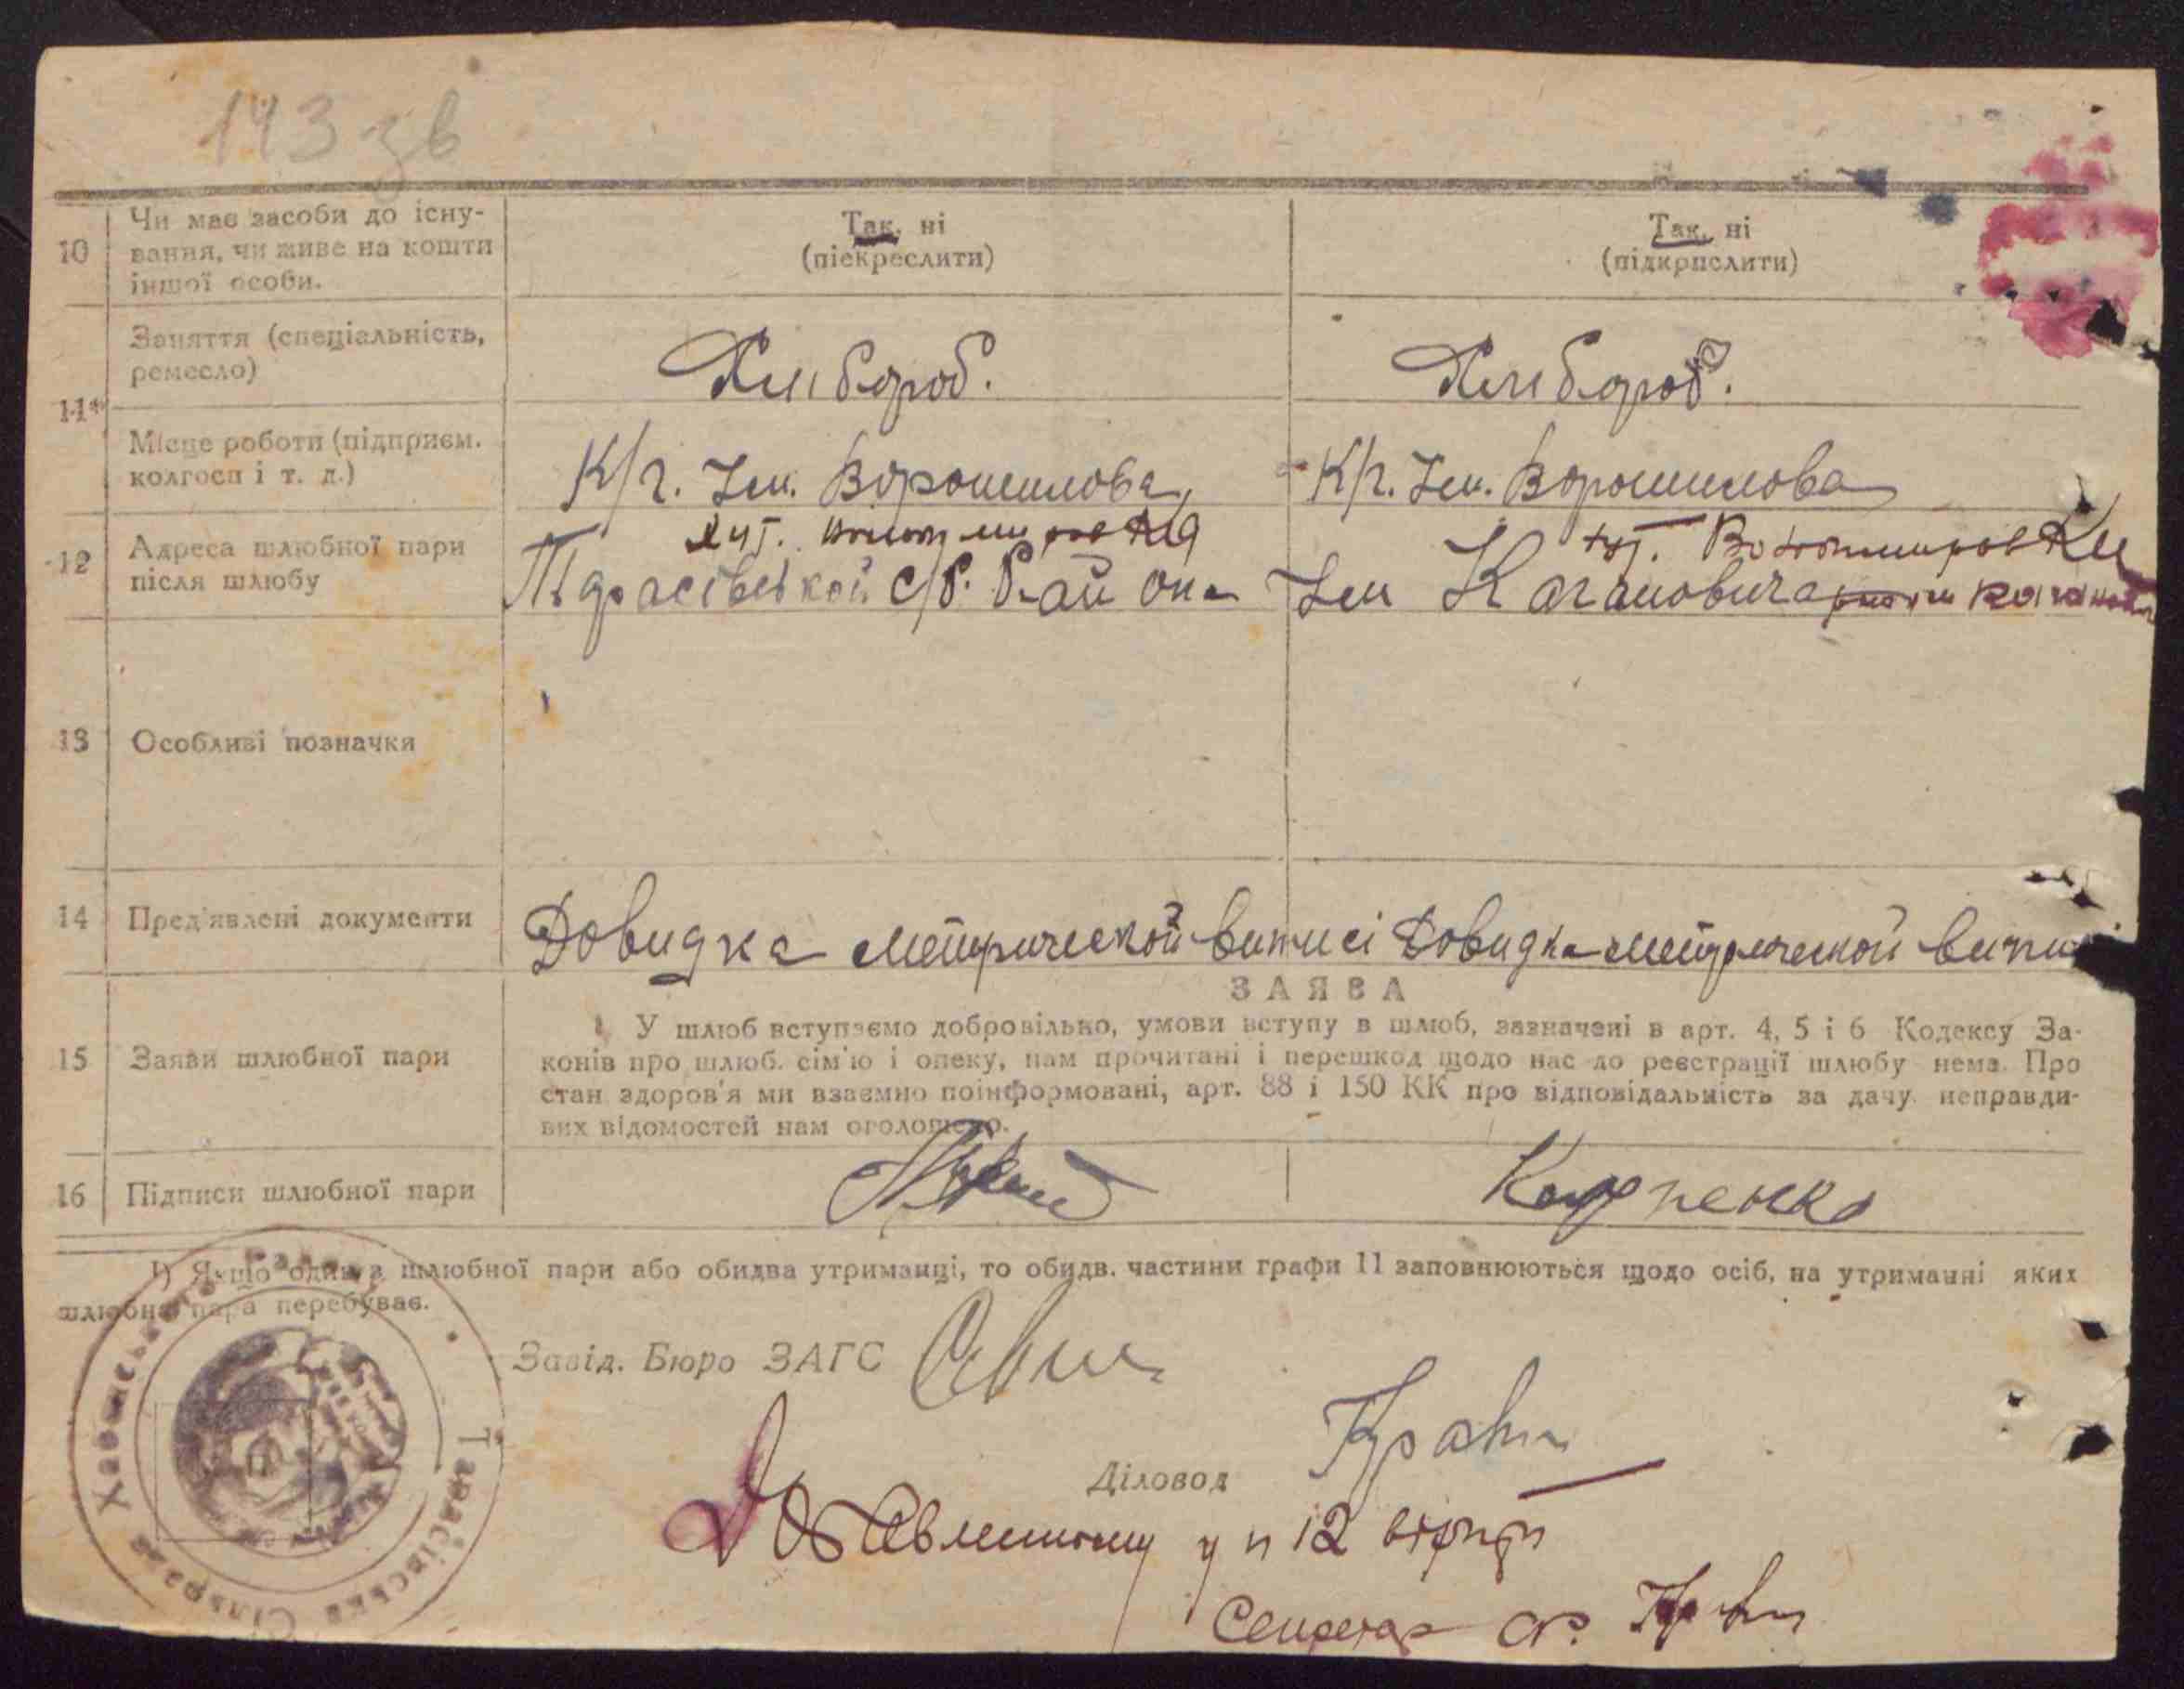 143 зв
10
Чи має засоби до існу-
вання, чи живе на кошти
іншої особи.
Так, ні
(піекреслити)
Так, ні
(підкрислити)
11*
Заняття (спеціальність,
ремесло)
Хлибороб.
Хлибороб.
Місце роботи (підприєм.
колгосп і т. д.)
К/г. Ім. Ворошилова
К/г. Ім. Ворошилова
12
Адреса шлюбної пари
після шлюбу
хут.
хут. Володимировки
Тарасівської с/р. Району
Ім Кагановича
13
Особливі позначки
14
Пред'явлені документи
Довидка метрической виписі
Довидка метрической
ЗАЯВА
15
Заяви шлюбної пари
У шлюб вступаємо добровільно, умови вступу в шлюб, зазначені в арт. 4, 5 і 6 Кодексу За-
конів про шлюб. сім'ю і опеку, нам прочитані і перешкод щодо нас до реєстрації шлюбу нема. Про
стан здоров'я ми взаємно поінформовані, арт. 88 і 150 КК про відповідальність за дачу неправди-
вих відомостей нам оголошено.
16
Підписи шлюбної пари
Карпенко
1) Якщо один з шлюбної пари або обидва утриманці, то обидв. частини графи 11 заповнюються щодо осіб, на утриманні яких
шлюбна пара перебуває.
Завід. Бюро ЗАГС
Діловод
у п 12
Секретар с/р.
Тарасівська Сільрада